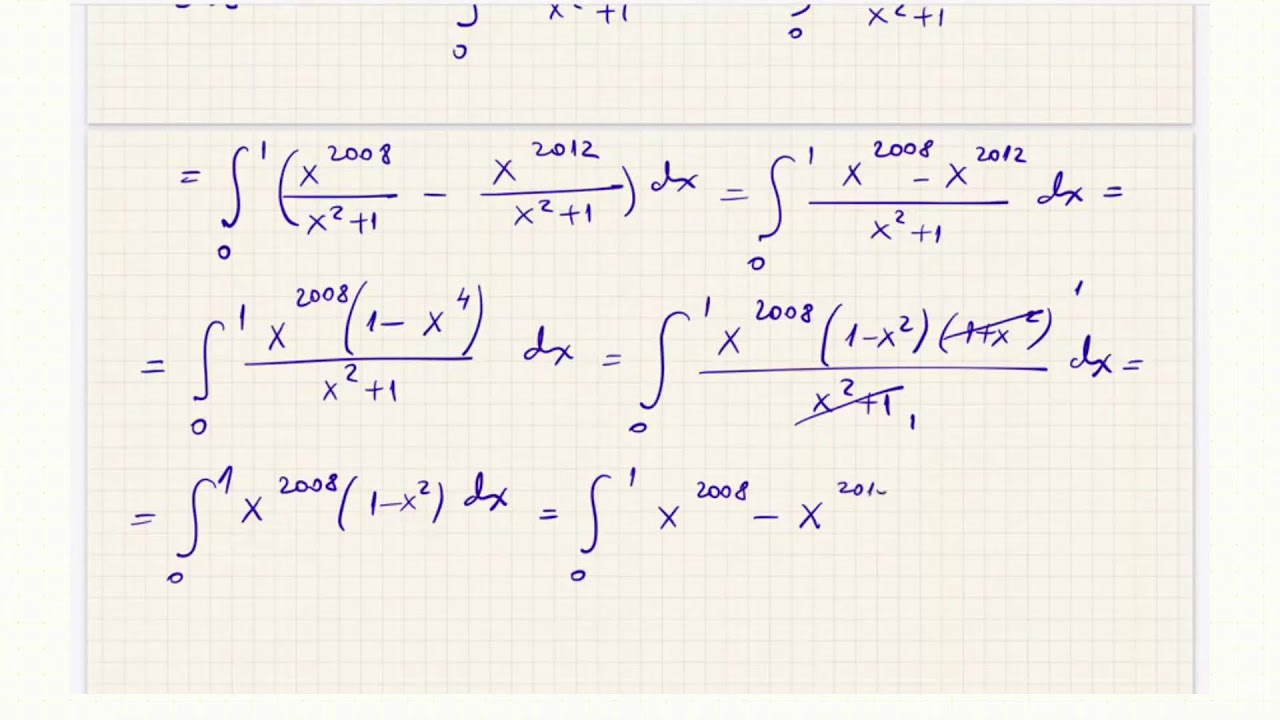 ∫₀ x²+1 ∫₀ x²+1
= ∫₀¹ (x²⁰⁰⁸/(x²+1) − x²⁰¹²/(x²+1)) dx = ∫₀¹ (x²⁰⁰⁸ − x²⁰¹²)/(x²+1) dx =
= ∫₀¹ x²⁰⁰⁸(1 − x⁴)/(x²+1) dx = ∫₀¹ x²⁰⁰⁸(1−x²)(1+x²)/(x²+1) dx =
= ∫₀¹ x²⁰⁰⁸(1−x²) dx = ∫₀¹ x²⁰⁰⁸ − x²⁰¹